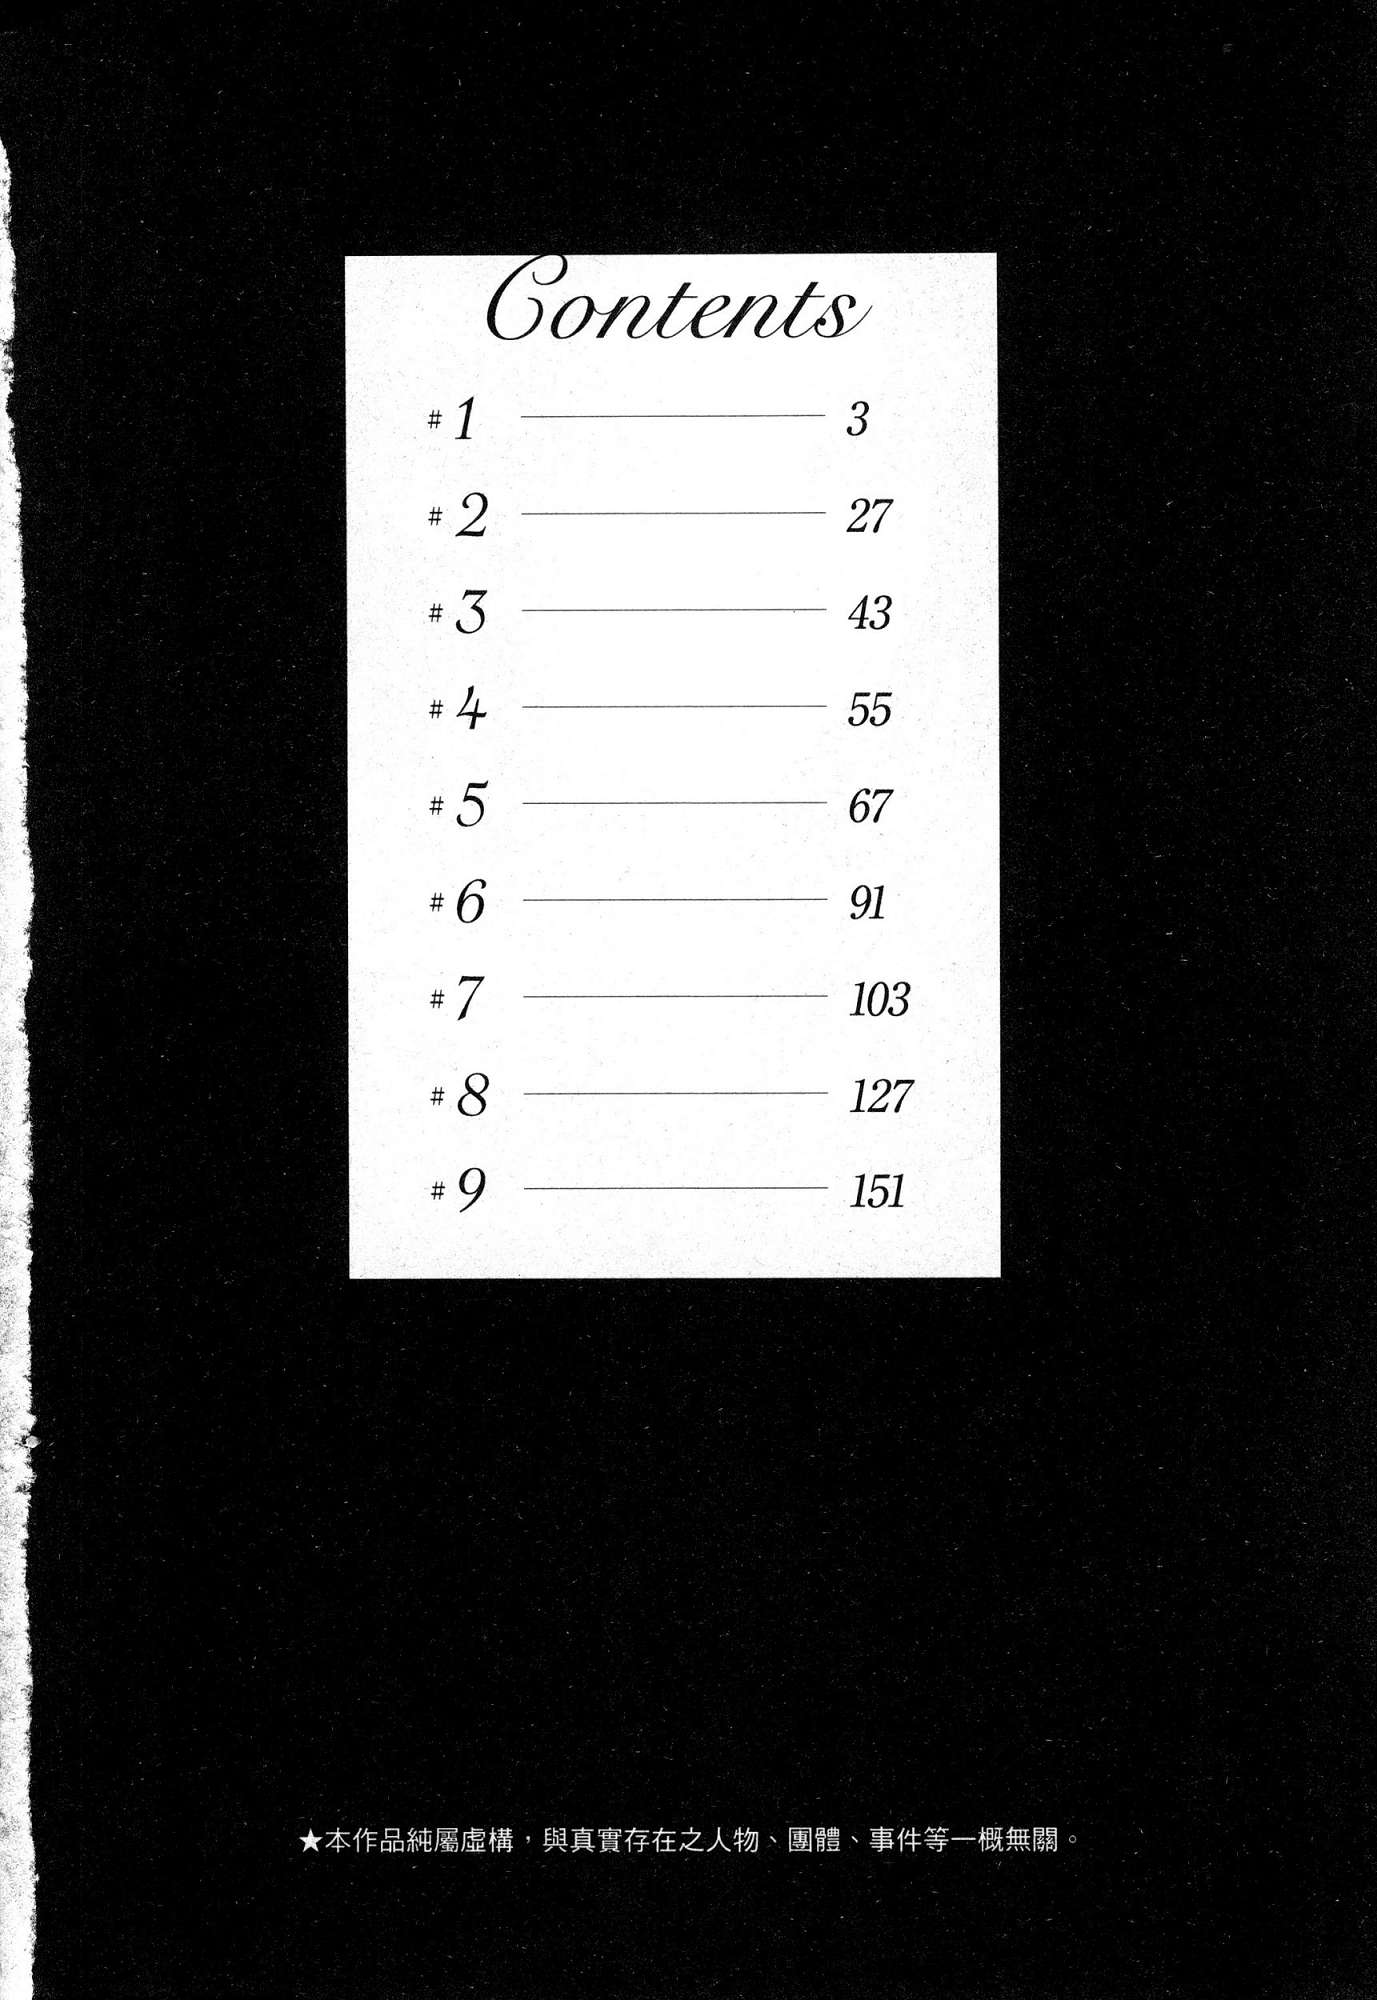 Contents
# 1 3
# 2 27
# 3 43
# 4 55
# 5 67
# 6 91
# 7 103
# 8 127
# 9 151
★本作品純屬虛構，與真實存在之人物、團體、事件等一概無關。